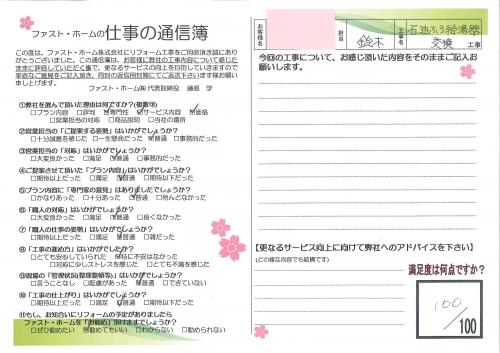 ファスト・ホームの 仕事の通信簿
この度は、ファスト・ホーム株式会社にリフォーム工事をご用命頂き誠にあり
がとうございました。この通信簿は、お客様に弊社の工事内容について感じた
ままに評価していただく事で、更なるサービスの向上を目指していきますので
率直なご意見をご記入頂き、同封の返信用封筒にてご返送下さいます様お願い
申し上げます。
ファスト・ホーム㈱ 代表取締役 藤原 学
①弊社を選んで頂いた理由は何ですか?(複数可)
□プラン内容 □評判 □専門性 □サービス内容 □価格
□担当者の対応 □商品説明 □当社の場所
②営業担当の「ご提案する姿勢」はいかがでしょうか?
□十分誠意を感じた □一生懸命だった □普通 □事務的だった
③営業担当の「対応」はいかがでしょうか?
□大変良かった □満足 □普通 □事務的だった
④ご提案させて頂いた「プラン内容」はいかがでしょうか?
□期待以上だった □満足 □普通 □期待以下だった
⑤プラン内容に「専門家の意見」はありましたでしょうか?
□かなりあった □十分あった □普通 □殆んどなかった
⑥「職人の対応」はいかがでしょうか?
□大変良かった □満足 □普通 □良くなかった
⑦「職人の仕事の姿勢」はいかがでしょうか?
□期待以上だった □満足 □普通 □雑だった
⑧「工事の進め方」はいかがでしたか?
□とても安心していられた □特に不安はなかった
□対応に少しストレスを感じた □とても不満を感じた
⑨現場の「管理状況(整理整頓等)」はいかがでしょうか?
□言うことなし □配慮があった □普通 □できていない
⑩「工事の仕上がり」はいかがでしょうか?
□期待以上だった □満足 □普通 □期待以下だった
⑪もし、お知合いにリフォームの予定がありましたら
ファスト・ホームを「お勧め」頂けますでしょうか?
□ぜひ勧めたい □勧めてもいい □わからない □勧められない
お客様名
担当
鈴木
工事名
石油ふろ給湯器
交換 工事
今回の工事について、お感じ頂いた内容をそのままご記入お
願いします。
【更なるサービス向上に向けて弊社へのアドバイスを下さい】
(どの様な内容でも結構です)
満足度は何点ですか?
100
/100